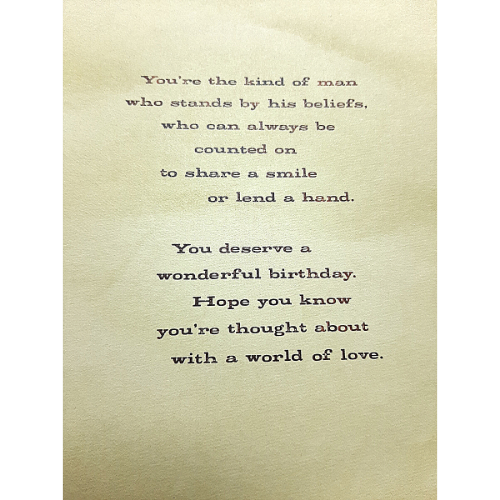 You're the kind of man
who stands by his beliefs,
who can always be
counted on
to share a smile
or lend a hand.
You deserve a
wonderful birthday.
Hope you know
you're thought about
with a world of love.